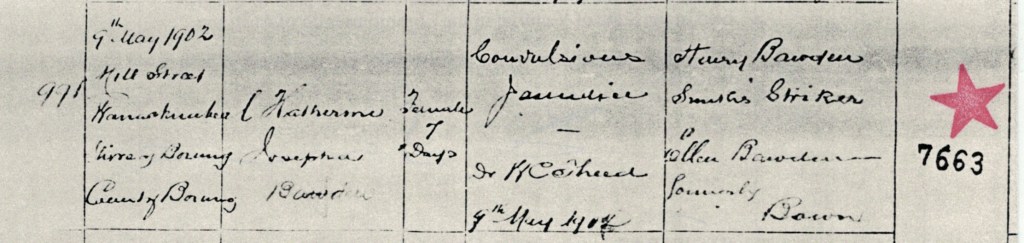 9th May 1902
Hill Street
Shire of Borung
County of Borung
Katherine
Josephine
Bawden
Female
7
Days
Convulsions
Jaundice
—
Dr
9th May 1902
Henry Bawden
Smith's Striker
Ellen Bawden
formerly
Bown
7663